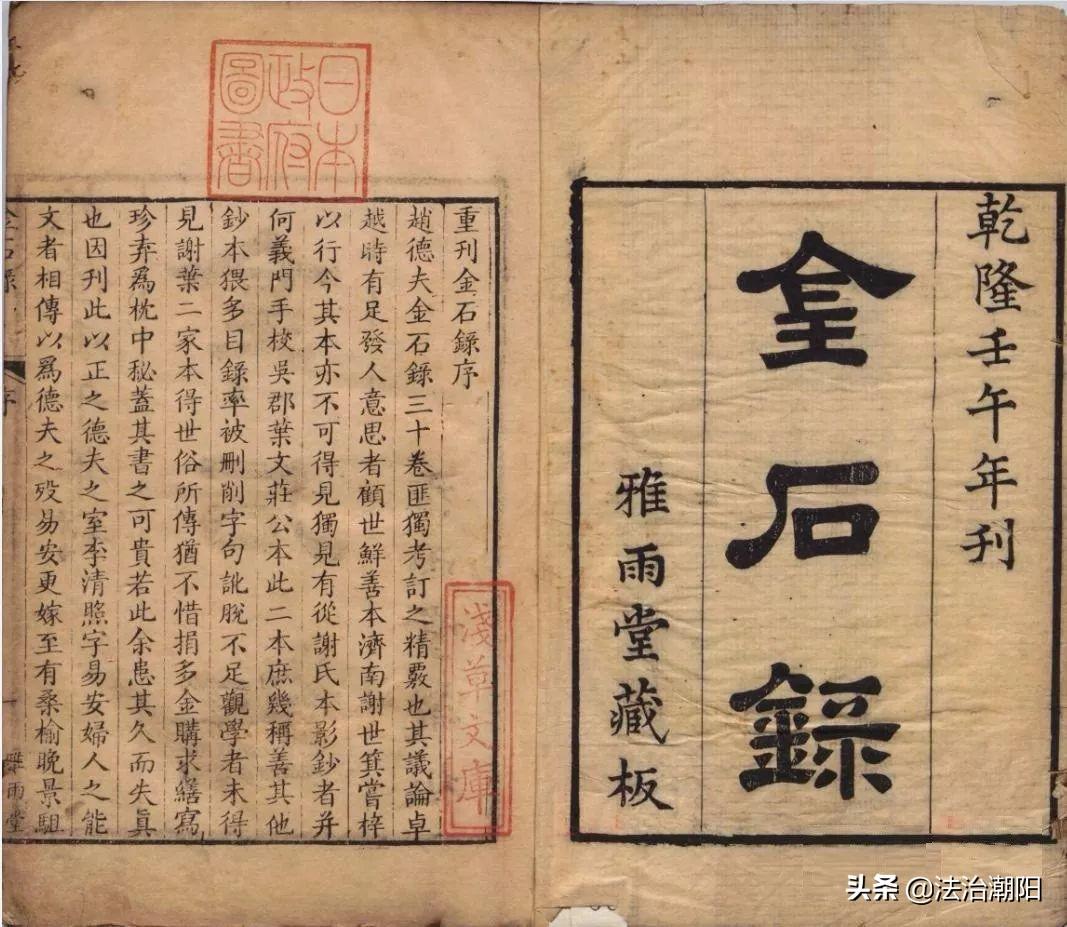 乾隆壬午年刊
金石錄
雅雨堂藏板
日本
政府
圖書
重刊金石錄序
趙德夫金石錄三十卷匪獨考訂之精覈也其議論卓
越時有足發人意思者顧世鮮善本濟南謝世箕嘗梓
以行今其本亦不可得見獨見有從謝氏本影鈔者并
何義門手校吳郡葉文莊公本此二本庶幾稱善其他
鈔本猥多目錄率被刪削字句訛脫不足觀學者未得
見謝葉二家本得世俗所傳猶不惜捐多金購求繕寫
珍弆爲枕中秘蓋其書之可貴若此余患其久而失眞
也因刊此以正之德夫之室李清照字易安婦人之能
文者相傳以爲德夫之歿易安更嫁至有桑榆晚景駔
淺草文庫
金石錄
序
雅雨堂
头条 @法治潮阳